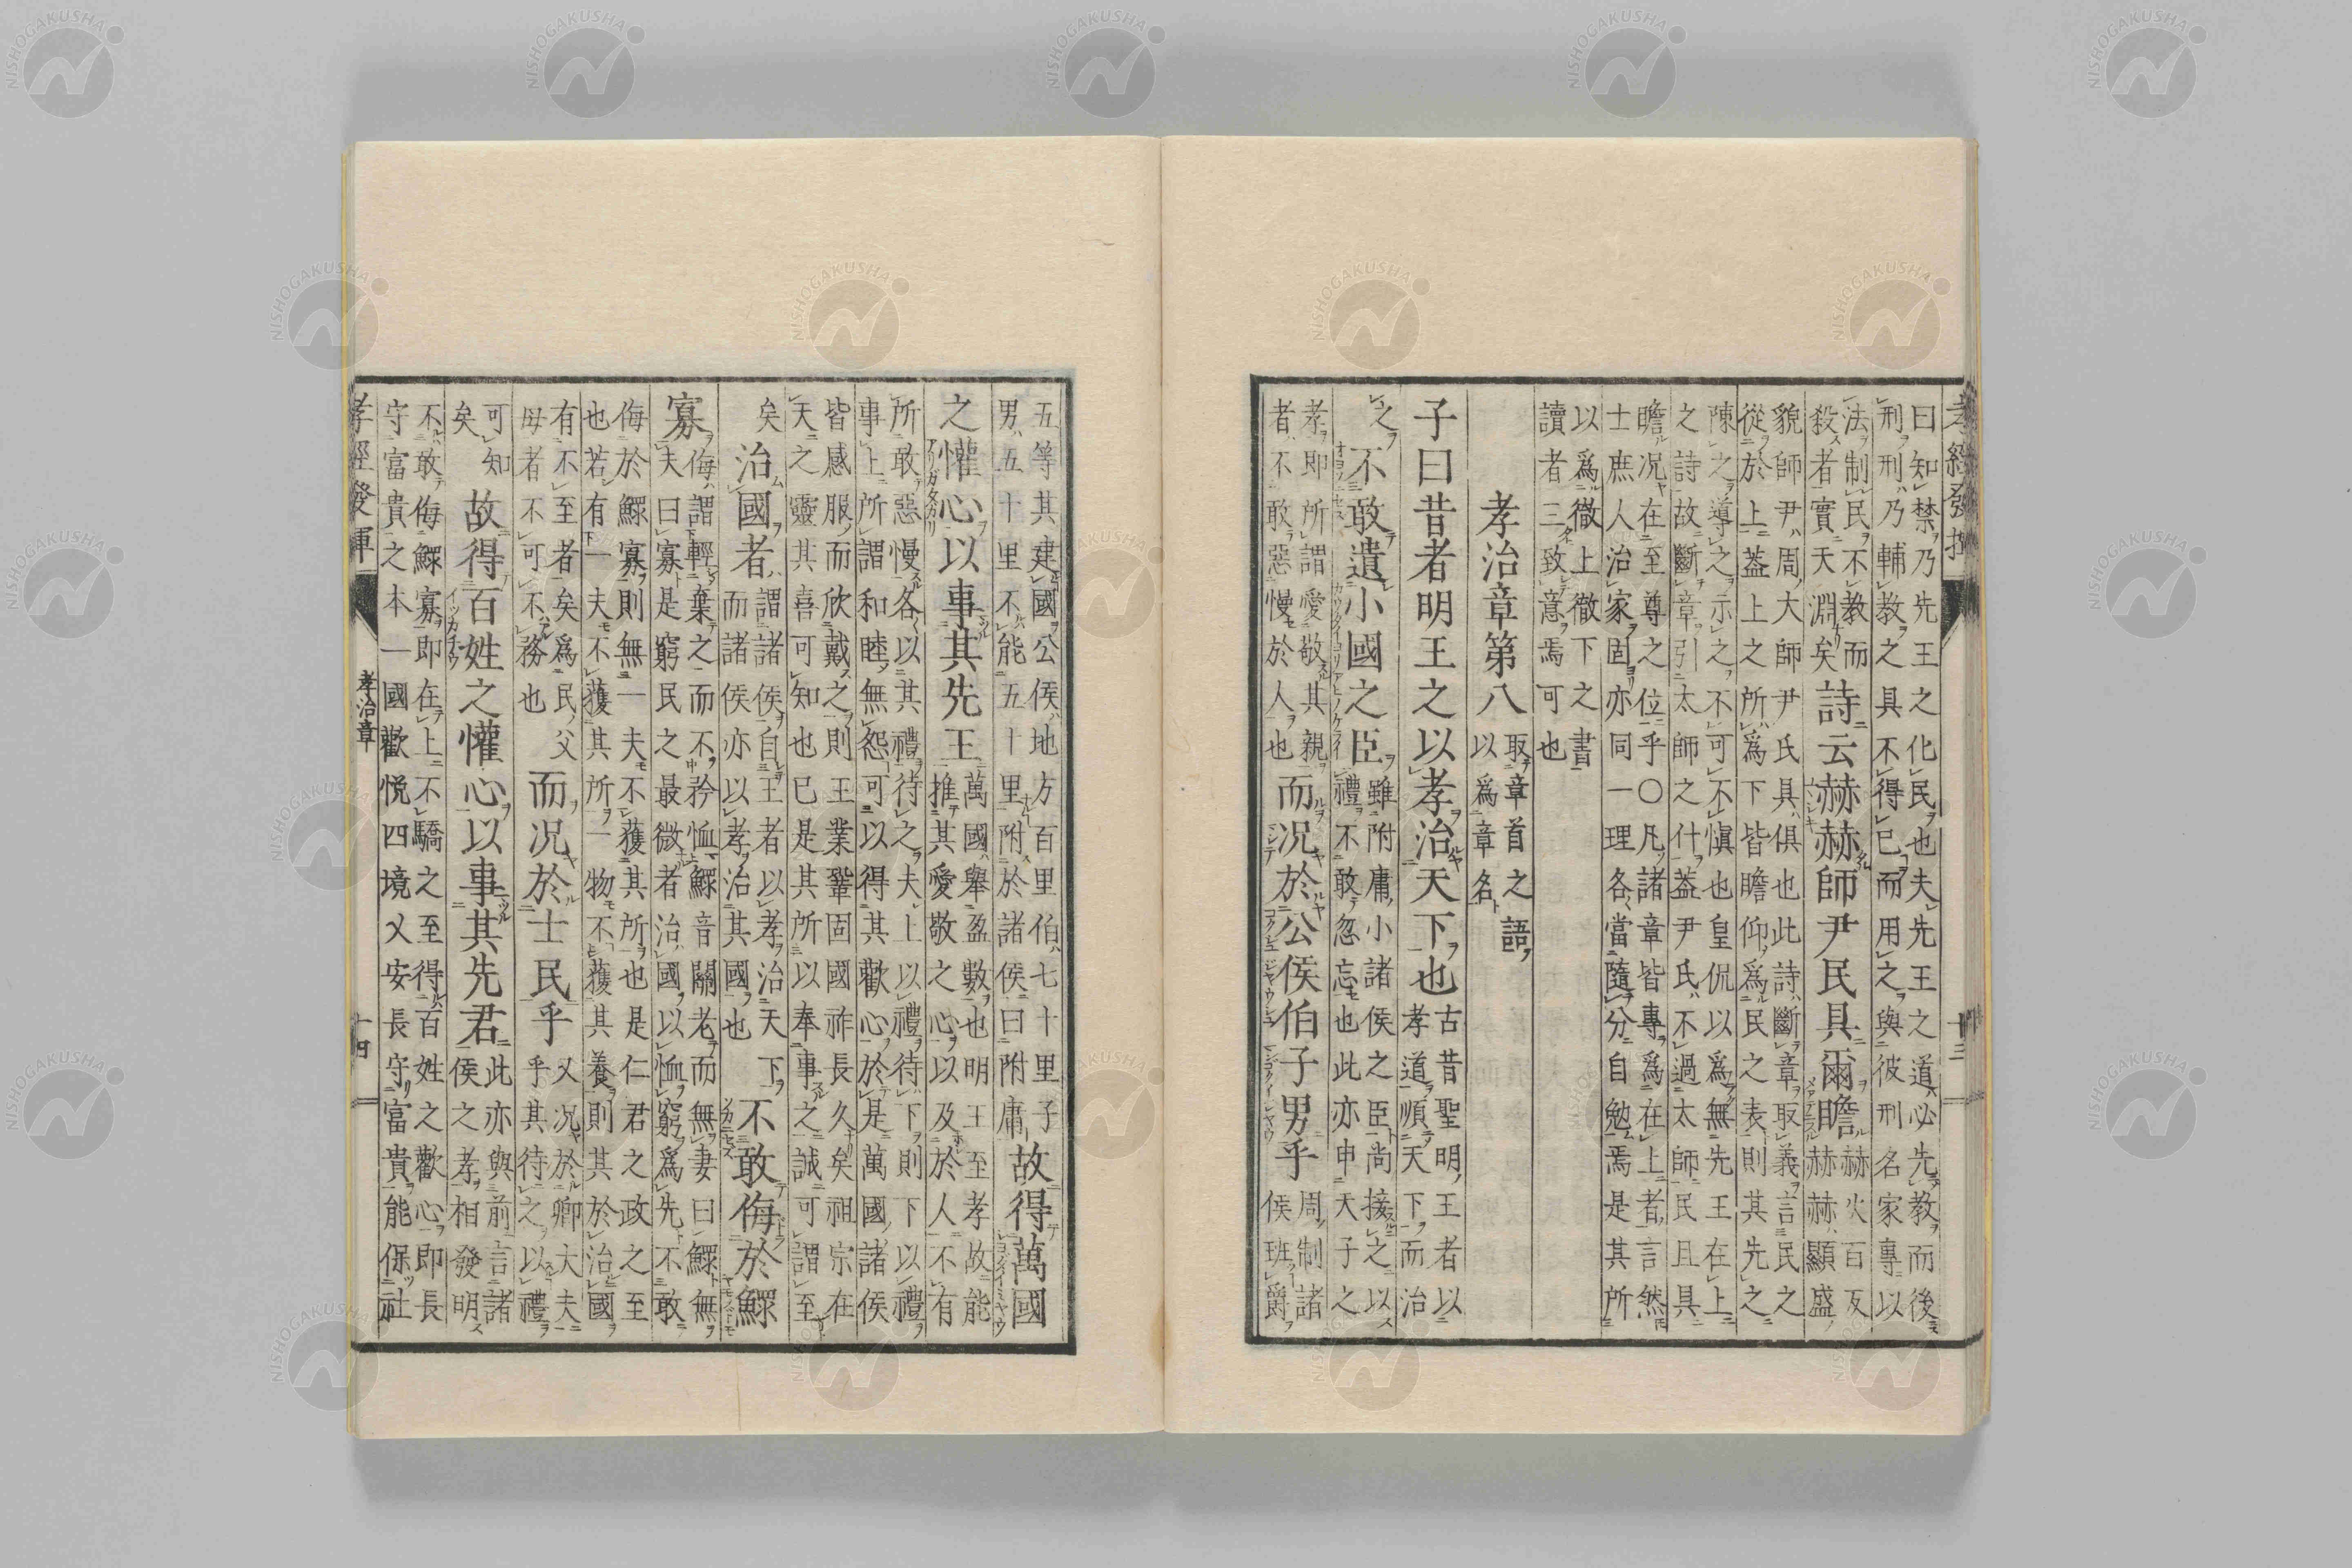 孝經發揮
十三
曰知禁乃先王之化民也夫先王之道必先教而後
刑刑乃輔教之具不得已而用之與彼刑名家專以
法制民不教而
殺者實天淵矣
詩云赫赫師尹民具爾瞻
赫火百反
赫赫顯盛
貌師尹周大師尹氏具俱也此詩斷章取義言民之
從於上蓋上之所爲下皆瞻仰爲民之表則其先之
陳之導之示之不可不愼也皇侃以爲無先王在上
之詩故斷章引太師之什蓋尹氏不過太師民且具
瞻况在至尊之位乎〇凡諸章皆專爲在上者言然
士庶人治家固亦同一理各當隨分自勉焉是其所
以爲徹上徹下之書
讀者三致意焉可也
孝治章第八
取章首之語
以爲章名
子曰昔者明王之以孝治天下也
古昔聖明王者以
孝道順天下而治
之
不敢遺小國之臣
雖附庸小諸侯之臣尚接之以
禮不敢忽忘也此亦申天子之
孝即所謂愛敬其親
者不敢惡慢於人也
而况於公侯伯子男乎
周制諸
侯班爵
五等其建國公侯地方百里伯七十里子
男五十里不能五十里附於諸侯曰附庸
故得萬國
之懽心以事其先王
萬國舉盈數也明王至孝故能
推其愛敬之心以及於人不有
所敢惡慢各以其禮待之夫上以禮待下則下以禮
事上所謂和睦無怨可以得其歡心於是萬國諸侯
皆感服而欣戴之則王業鞏固國祚長久矣祖宗在
天之靈其喜可知也已是其所以奉事之誠可謂至
矣
治國者
謂諸侯自王者以孝治天下
而諸侯亦以孝治其國也
不敢侮於鰥
寡
侮謂輕棄之而不矜恤鰥音關老而無妻曰鰥無
夫曰寡是窮民之最微者治國以恤窮爲先不敢
侮於鰥寡則無一夫不獲其所也是仁君之政之至
也若有一夫不獲其所一物不獲其養則其於治國
有不至者矣爲民父
母者不可不務也
而况於士民乎
又况於卿大夫
乎其待之以禮
可知
矣
故得百姓之懽心以事其先君
此亦與前言諸
侯之孝相發明
不敢侮鰥寡即在上不驕之至得百姓之歡心即長
守富貴之本一國歡悅四境乂安長守富貴能保社
孝經發揮
孝治章
十四
NISHOGAKUSHA